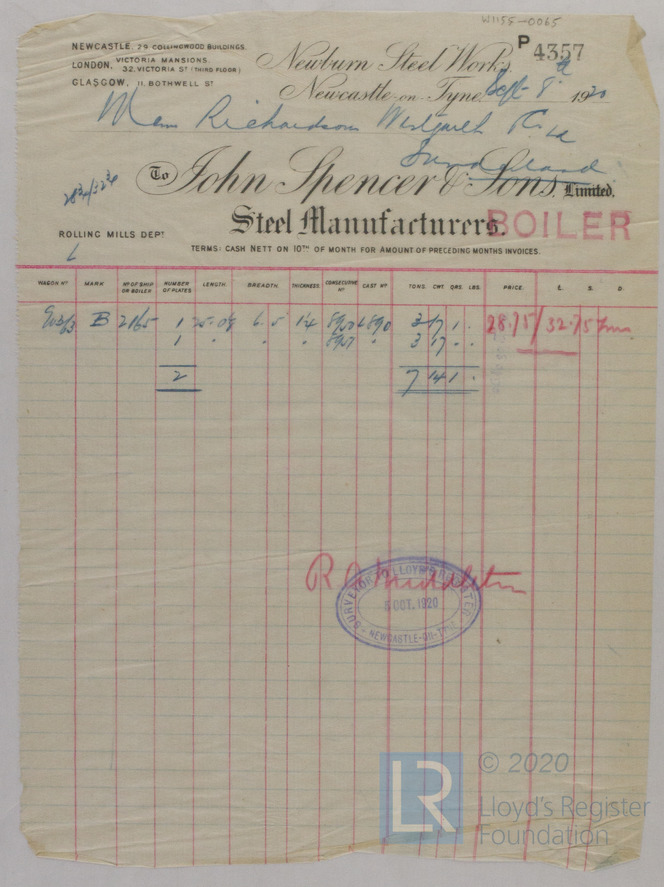 W1155-0065
NEWCASTLE, 29 COLLINGWOOD BUILDINGS.
LONDON, VICTORIA MANSIONS, 32, VICTORIA ST (THIRD FLOOR)
GLASGOW, 11, BOTHWELL ST
Newburn Steel Works,
P 4357
Newcastle-on-Tyne, Sept 8th 1920
Richardson Westgarth
Sunderland
To John Spencer & Sons, Limited.
Steel Manufacturers.
BOILER
ROLLING MILLS DEPT
TERMS: CASH NETT ON 10TH OF MONTH FOR AMOUNT OF PRECEDING MONTHS INVOICES.
WAGON NO MARK NO OF SHIP OR BOILER NUMBER OF PLATES LENGTH. BREADTH. THICKNESS. CONSECUTIVE NO CAST NO TONS. CWT. QRS. LBS. PRICE. £. S. D.
B 2165 1 6.5 1¼ 6890 3 17 1 . 28.75/32.75 Tons
1 " " " 8907 " 3 17 . .
2 7 14 1 .
R. Middleton
SURVEYOR TO LLOYD'S REGISTER
5 OCT. 1920
NEWCASTLE-ON-TYNE
LR
© 2020
Lloyd's Register
Foundation